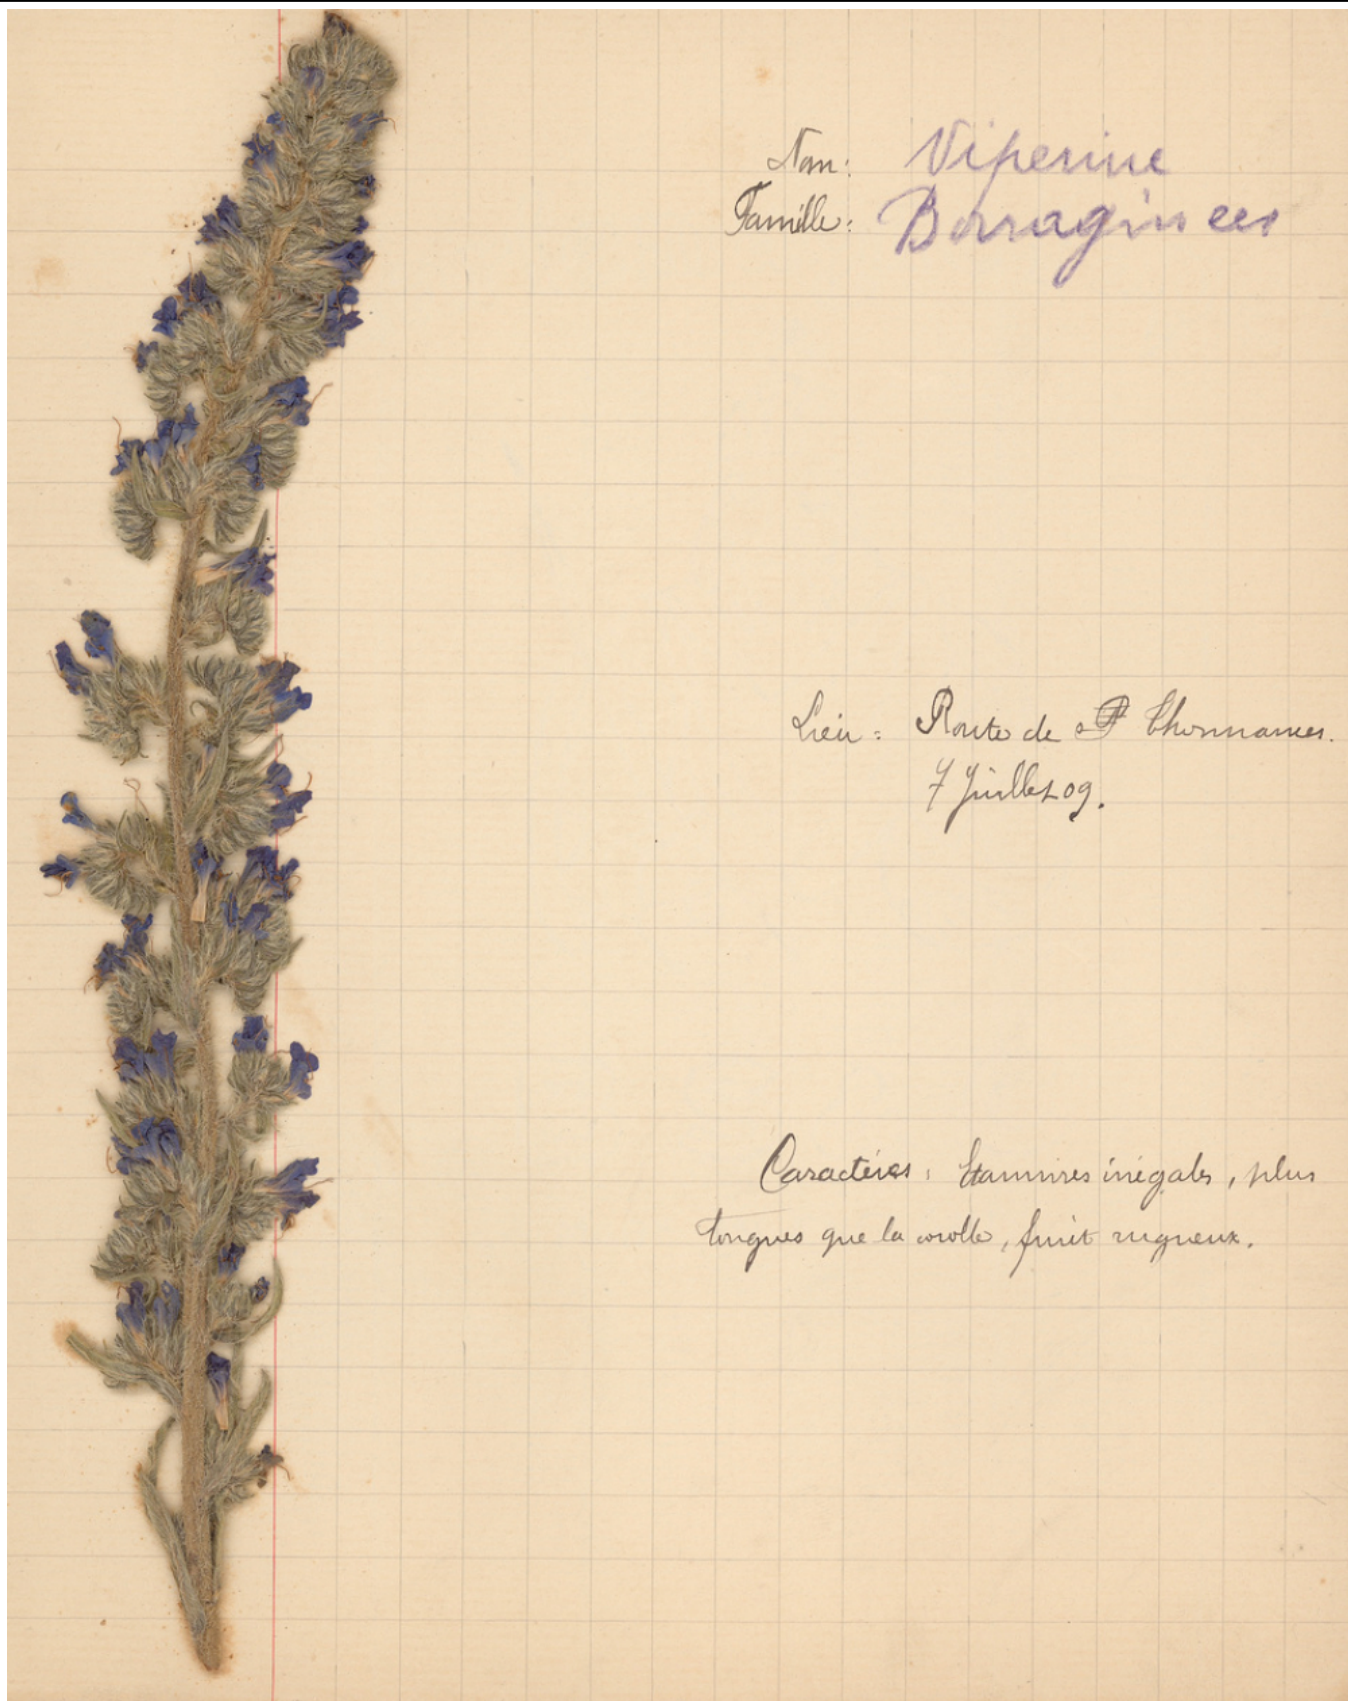 Nom: Viperine
Famille: Borraginées
Lieu: Route de Thonnance.
7 Juillet 09.
Caractères: Etamines inégales, plus
longues que la corolle, fruit rugueux.